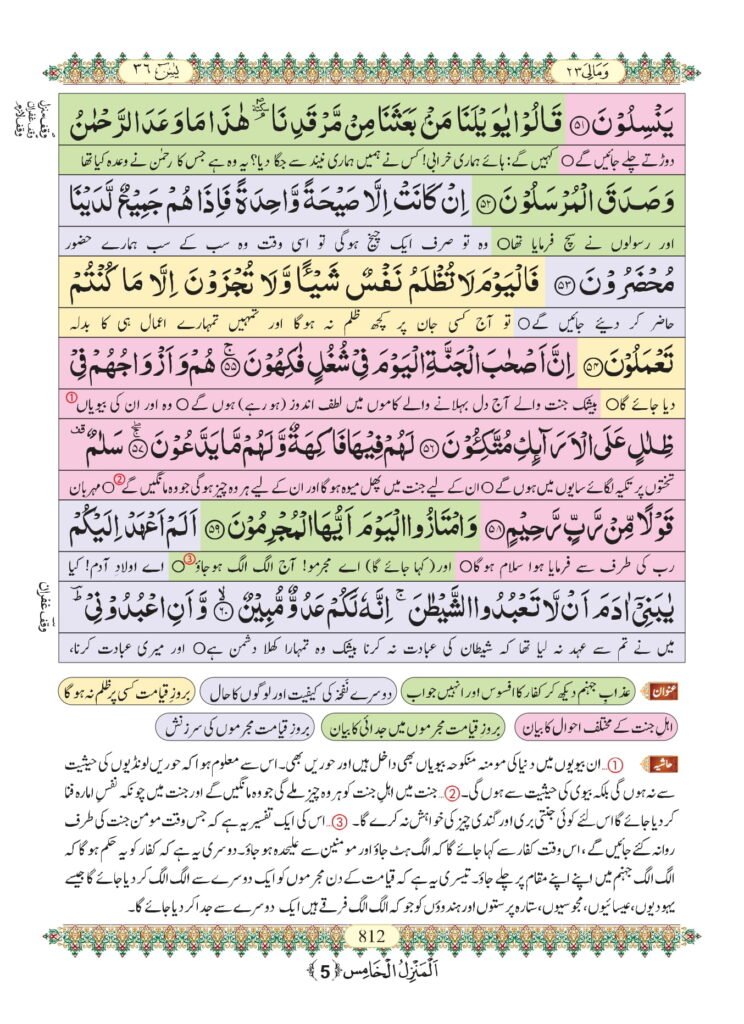 وَمَالِیَ ٢٣
یٰسٓ ٣٦
وقف منزل
وقف غفران
وقف لازم
یَنْسِلُوْنَ ﴿۵۱﴾ قَالُوْا یٰوَیْلَنَا مَنْۢ بَعَثَنَا مِنْ مَّرْقَدِنَا ٜۘؐ هٰذَا مَا وَعَدَ الرَّحْمٰنُ
دوڑتے چلے جائیں گے○ کہیں گے: ہائے ہماری خرابی! کس نے ہمیں ہماری نیند سے جگا دیا؟ یہ وہ ہے جس کا رحمٰن نے وعدہ کیا تھا
وَ صَدَقَ الْمُرْسَلُوْنَ ﴿۵۲﴾ اِنْ كَانَتْ اِلَّا صَیْحَةً وَّاحِدَةً فَاِذَا هُمْ جَمِیْعٌ لَّدَیْنَا
اور رسولوں نے سچ فرمایا تھا○ وہ تو صرف ایک چیخ ہوگی تو اسی وقت وہ سب کے سب ہمارے حضور
مُحْضَرُوْنَ ﴿۵۳﴾ فَالْیَوْمَ لَا تُظْلَمُ نَفْسٌ شَیْــٴًـا وَّ لَا تُجْزَوْنَ اِلَّا مَا كُنْتُمْ
حاضر کر دیئے جائیں گے○ تو آج کسی جان پر کچھ ظلم نہ ہوگا اور تمہیں تمہارے اعمال ہی کا بدلہ
تَعْمَلُوْنَ ﴿۵۴﴾ اِنَّ اَصْحٰبَ الْجَنَّةِ الْیَوْمَ فِیْ شُغُلٍ فٰكِهُوْنَ ﴿۵۵﴾ۚ هُمْ وَ اَزْوَاجُهُمْ فِیْ
دیا جائے گا○ بیشک جنت والے آج دل بہلانے والے کاموں میں لطف اندوز (ہو رہے) ہوں گے○ وہ اور ان کی بیویاں①
ظِلٰلٍ عَلَى الْاَرَآىٕكِ مُتَّكِـُٔوْنَ ﴿۵۶﴾ لَهُمْ فِیْهَا فَاكِهَةٌ وَّ لَهُمْ مَّا یَدَّعُوْنَ ﴿۵۷﴾ۚۖ سَلٰمٌ قف
تختوں پر تکیہ لگائے سایوں میں ہوں گے○ ان کے لیے جنت میں پھل میوہ ہوگا اور ان کے لیے ہر وہ چیز ہوگی جو وہ مانگیں گے②○ مہربان
قَوْلًا مِّنْ رَّبٍّ رَّحِیْمٍ ﴿۵۸﴾ وَ امْتَازُوا الْیَوْمَ اَیُّهَا الْمُجْرِمُوْنَ ﴿۵۹﴾ اَلَمْ اَعْهَدْ اِلَیْكُمْ
رب کی طرف سے فرمایا ہوا سلام ہوگا○ اور (کہا جائے گا) اے مجرمو! آج الگ الگ ہوجاؤ③○ اے اولادِ آدم! کیا
وقف غفران
یٰبَنِیْۤ اٰدَمَ اَنْ لَّا تَعْبُدُوا الشَّیْطٰنَۚ اِنَّهٗ لَكُمْ عَدُوٌّ مُّبِیْنٌ ﴿۶۰﴾ۙ وَّ اَنِ اعْبُدُوْنِیْ ؔؕ
میں نے تم سے عہد نہ لیا تھا کہ شیطان کی عبادت نہ کرنا بیشک وہ تمہارا کھلا دشمن ہے○ اور میری عبادت کرنا،
عنوان عذابِ جہنم دیکھ کر کفار کا افسوس اور انہیں جواب دوسرے نَفْخہ کی کیفیت اور لوگوں کا حال بروزِ قیامت کسی پر ظلم نہ ہوگا
اہلِ جنت کے مختلف احوال کا بیان بروزِ قیامت مجرموں میں جدائی کا بیان بروزِ قیامت مجرموں کی سرزنش
حاشیہ ①…ان بیویوں میں دنیا کی مومنہ منکوحہ بیویاں بھی داخل ہیں اور حوریں بھی۔ اس سے معلوم ہوا کہ حوریں لونڈیوں کی حیثیت
سے نہ ہوں گی بلکہ بیوی کی حیثیت سے ہوں گی۔ ②…جنت میں اہلِ جنت کو ہر وہ چیز ملے گی جو وہ مانگیں گے اور جنت میں چونکہ نفسِ امارہ فنا
کر دیا جائے گا اس لئے کوئی جنتی بری اور گندی چیز کی خواہش نہ کرے گا۔ ③…اس کی ایک تفسیر یہ ہے کہ جس وقت مومن جنت کی طرف
روانہ کئے جائیں گے، اس وقت کفار سے کہا جائے گا کہ الگ ہٹ جاؤ اور مومنین سے علیحدہ ہوجاؤ۔ دوسری یہ ہے کہ کفار کو یہ حکم ہوگا کہ
الگ الگ جہنم میں اپنے اپنے مقام پر چلے جاؤ۔ تیسری یہ ہے کہ قیامت کے دن مجرموں کو ایک دوسرے سے الگ الگ کر دیا جائے گا جیسے
یہودیوں، عیسائیوں، مجوسیوں، ستارہ پرستوں اور ہندوؤں کو جو کہ الگ الگ فرقے ہیں ایک دوسرے سے جدا کر دیا جائے گا۔
812
اَلْمَنْزِلُ الْخَامِس ﴿5﴾